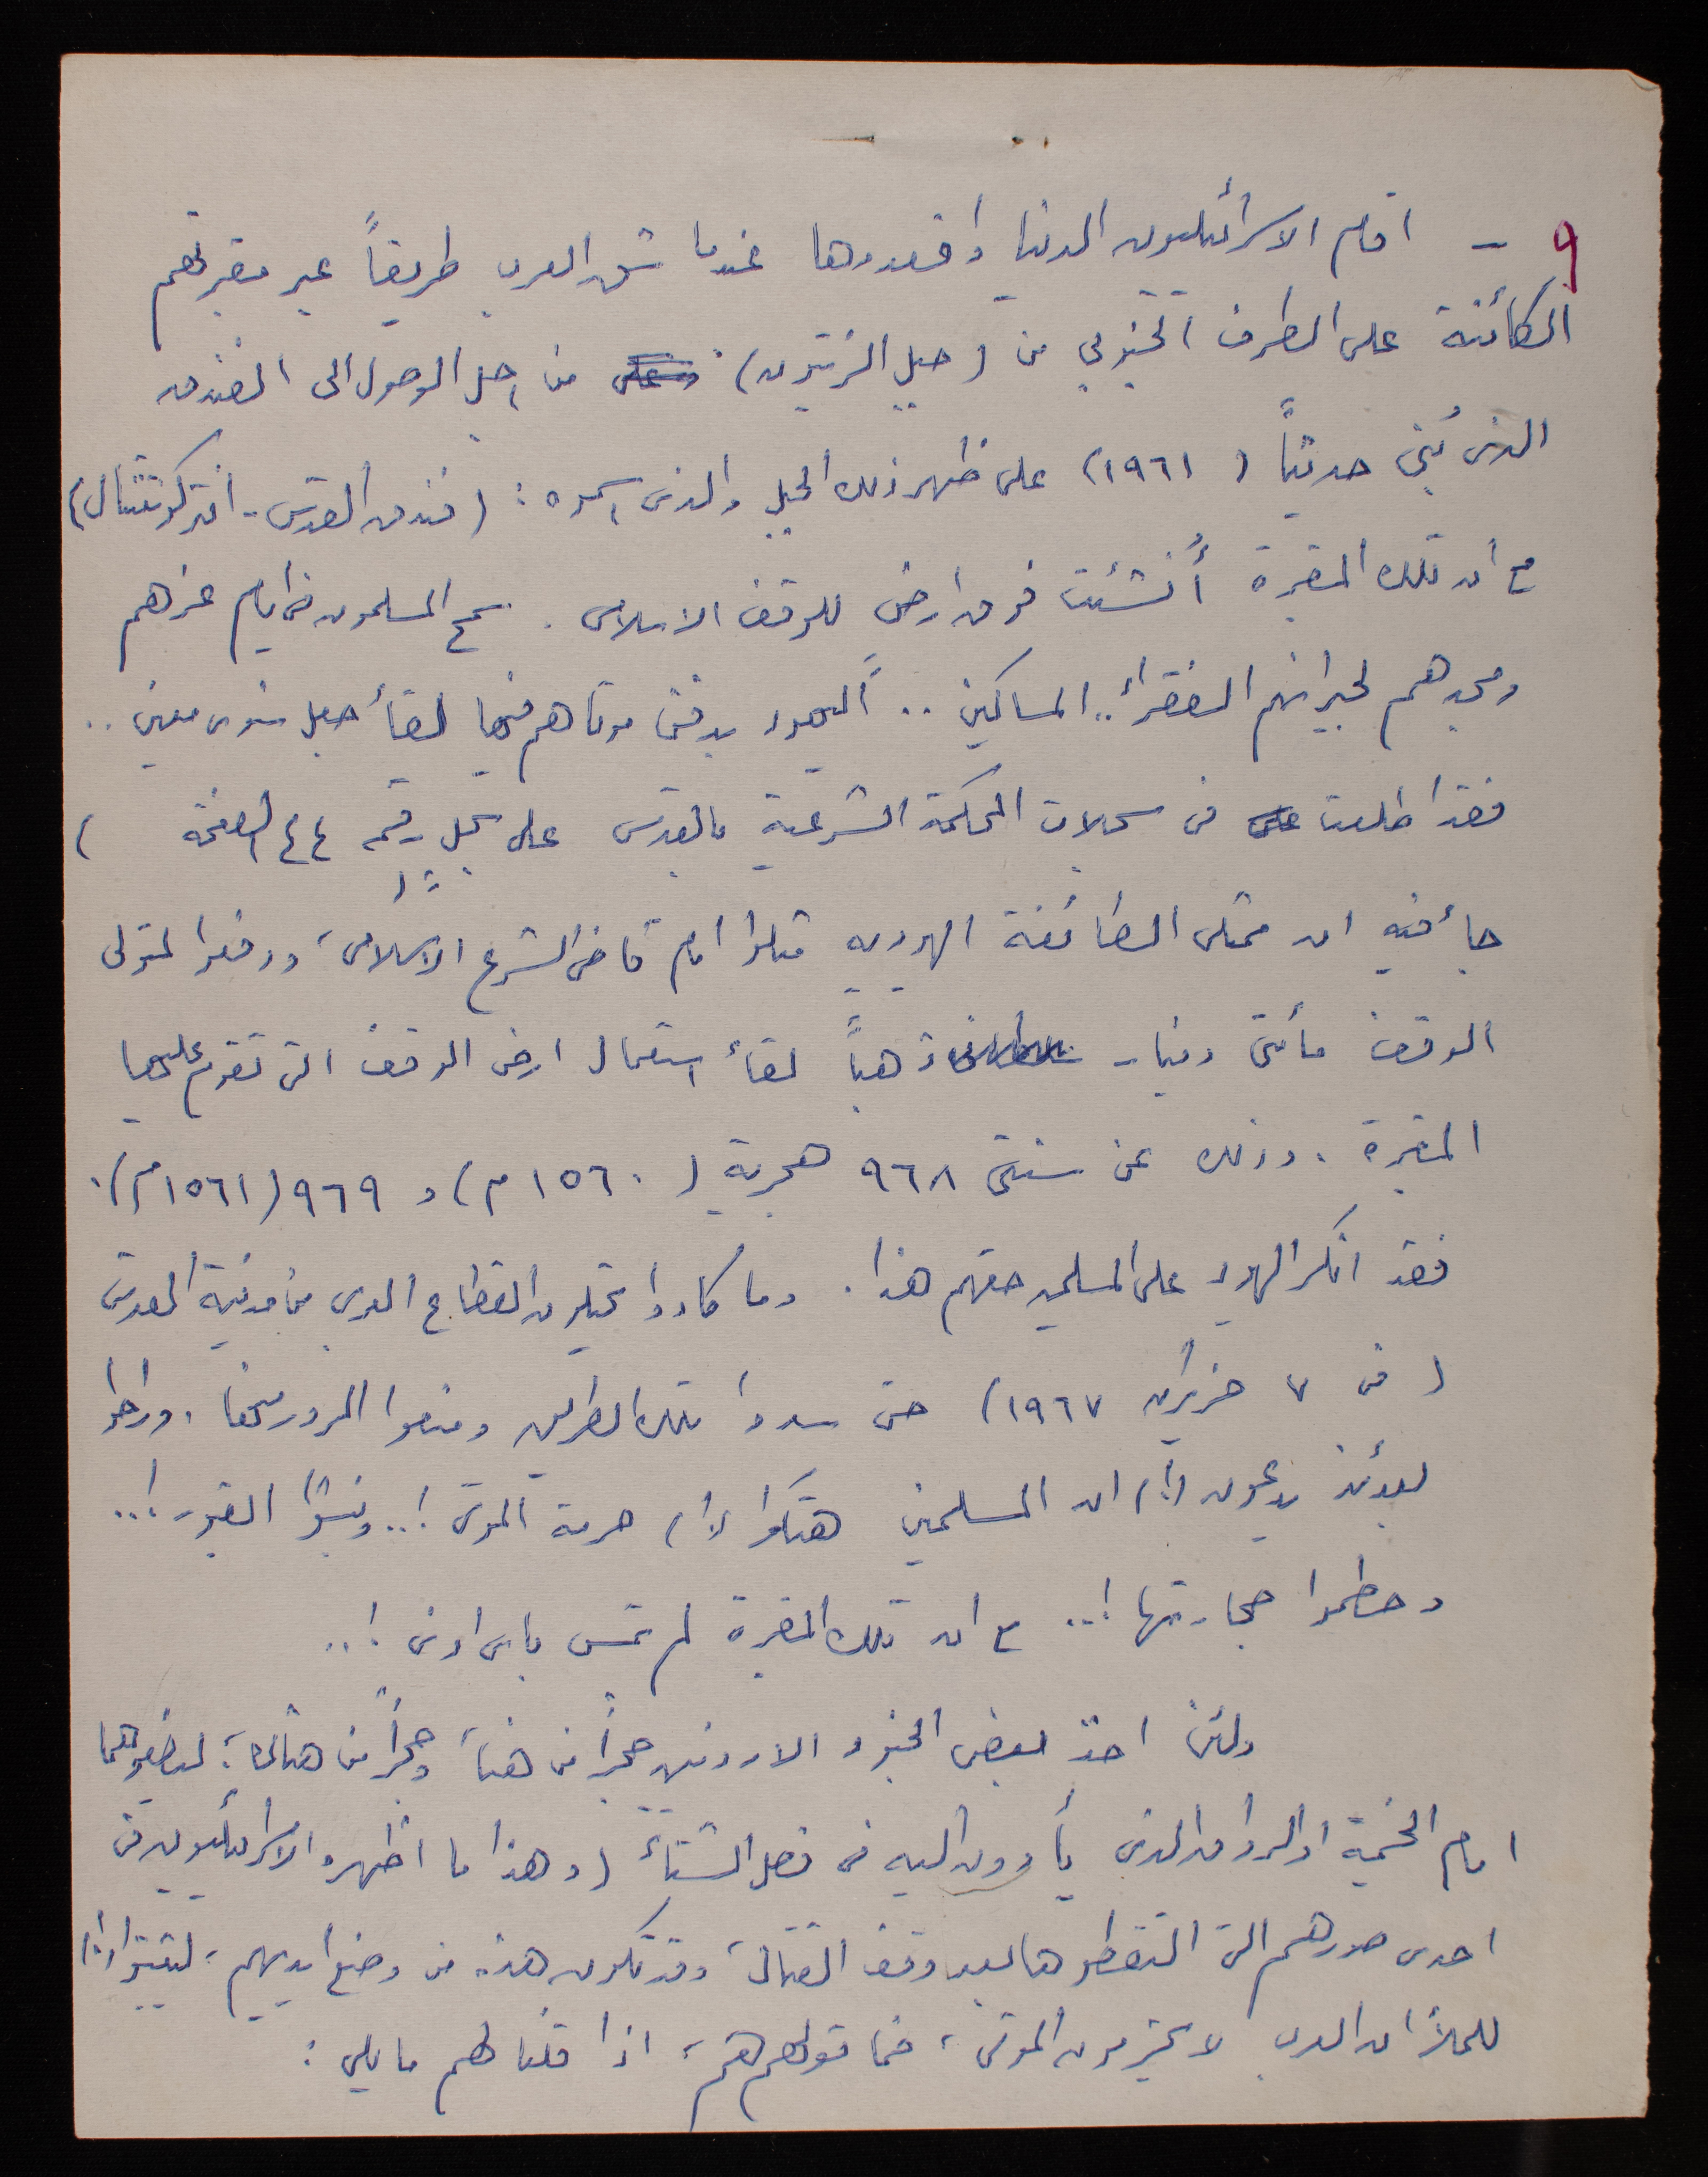 ٩ - اقام الاسرائيليون الدنيا واقعدوها عندما شق العرب طريقاً عبر مقبرتهم
الكائنة على الطرف الجنوبي من (جبل الزيتون) من اجل الوصول الى الفندق
الذى بُني حديثاً (١٩٦١) على ظهر ذلك الجبل والذى اسموه : (فندق القدس - انتركونتننتال)
مع أن تلك المقبرة أُنشئت فوق ارض للوقف الاسلامى . سمح المسلمون فى ايام عزهم
ومجدهم لجيرانهم الفقرأ .. المساكين .. اليهود بدفن موتاهم فيها لقأ جعل سنوى معين ..
فقد اطلعت فى سجلات المحكمة الشرعية بالقدس على سجل رقمه ٤٤ الصفحة )
جأ فيه ان ممثلى الطائفة اليهوديه مثلوا امام قاضى الشرع الاسلامى، ودفعوا لمتولى
الوقف مأتى دينار ذهباً لقأ استعمال ارض الوقف التى تقوم عليها
المقبرة . وذلك عن سنتى ٩٦٨ هجرية (١٥٦٠ م) و ٩٦٩ (١٥٦١ م).
فقد انكر اليهود على المسلمين حقهم هذا . وما كادوا يحتلون القطاع العربى من مدينة القدس
(فى ٧ حزيران ١٩٦٧) حتى سدوا تلك الطريق ومنعوا المرور منها . وراحوا
بعدئذ يدعون (!) ان المسلمين هتكوا (!) حرمة الموتى !.. ونبشوا القبور !..
وحطموا حجارتها !.. مع ان تلك المقبرة لم تمس باى اذى !..
ولئن اخذ بعض الجنود الاردنيين حجراً من هنا، وحجراً من هناك، ليضعوهما
امام الخيمة او الرواق الذى يأوون اليه فى فصل الشتأ (وهذا ما اظهره الاسرائيليون فى
احدى صورهم التى التقطوها بعد وقف القتال، وقد تكون هذه من وضع ايديهم، ليثبتوا (!)
للملأ ان العرب لا يحترمون الموتى، فما قولهم هم، اذا قلنا لهم ما يلى :